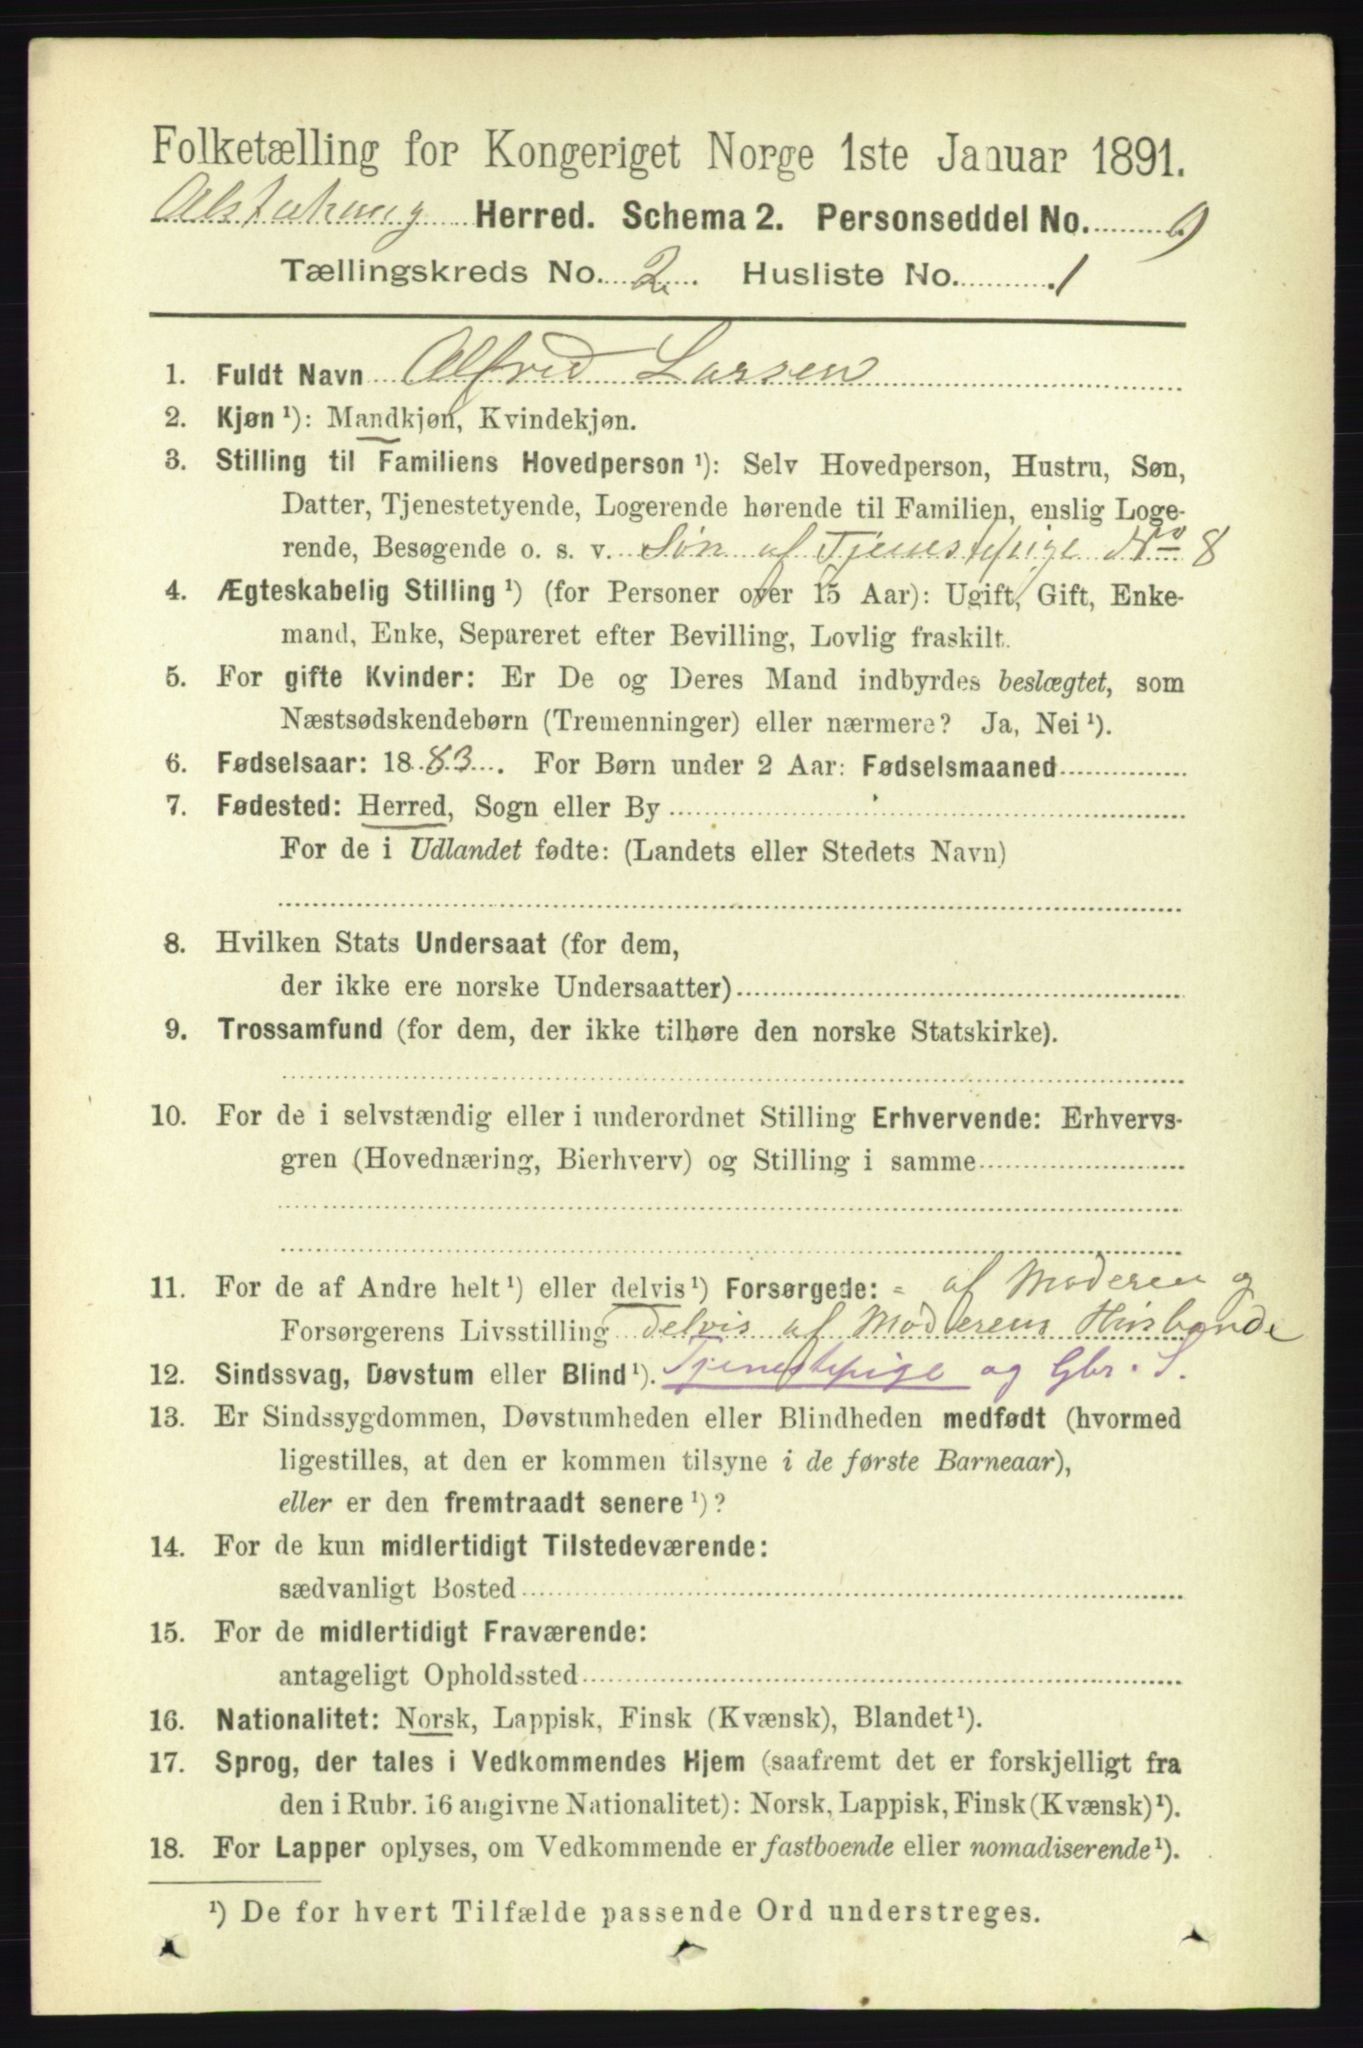 Folketælling for Kongeriget Norge 1ste Januar 1891.
Alstahaug Herred. Schema 2. Personseddel No. 9
Tællingskreds No. 2. Husliste No. 1
1. Fuldt Navn Alfred Larsen
2. Kjøn ¹): Mandkjøn, Kvindekjøn.
3. Stilling til Familiens Hovedperson ¹): Selv Hovedperson, Hustru, Søn,
Datter, Tjenestetyende, Logerende hørende til Familien, enslig Loge-
rende, Besøgende o. s. v. Søn af Tjenestepige No 8
4. Ægteskabelig Stilling ¹) (for Personer over 15 Aar): Ugift, Gift, Enke-
mand, Enke, Separeret efter Bevilling, Lovlig fraskilt.
5. For gifte Kvinder: Er De og Deres Mand indbyrdes beslægtet, som
Næstsødskendebørn (Tremenninger) eller nærmere? Ja, Nei ¹).
6. Fødselsaar: 1883. For Børn under 2 Aar: Fødselsmaaned
7. Fødested: Herred, Sogn eller By
For de i Udlandet fødte: (Landets eller Stedets Navn)
8. Hvilken Stats Undersaat (for dem,
der ikke ere norske Undersaatter)
9. Trossamfund (for dem, der ikke tilhøre den norske Statskirke).
10. For de i selvstændig eller i underordnet Stilling Erhvervende: Erhvervs-
gren (Hovednæring, Bierhverv) og Stilling i samme
11. For de af Andre helt ¹) eller delvis ¹) Forsørgede: - af Moderen og
Forsørgerens Livsstilling delvis af Moderens Husbonde
12. Sindssvag, Døvstum eller Blind ¹). Tjenestepige og Gbr. S.
13. Er Sindssygdommen, Døvstumheden eller Blindheden medfødt (hvormed
ligestilles, at den er kommen tilsyne i de første Barneaar),
eller er den fremtraadt senere ¹)?
14. For de kun midlertidigt Tilstedeværende:
sædvanligt Bosted
15. For de midlertidigt Fraværende:
antageligt Opholdssted
16. Nationalitet: Norsk, Lappisk, Finsk (Kvænsk), Blandet ¹).
17. Sprog, der tales i Vedkommendes Hjem (saafremt det er forskjelligt fra
den i Rubr. 16 angivne Nationalitet): Norsk, Lappisk, Finsk (Kvænsk) ¹).
18. For Lapper oplyses, om Vedkommende er fastboende eller nomadiserende ¹).
¹) De for hvert Tilfælde passende Ord understreges.